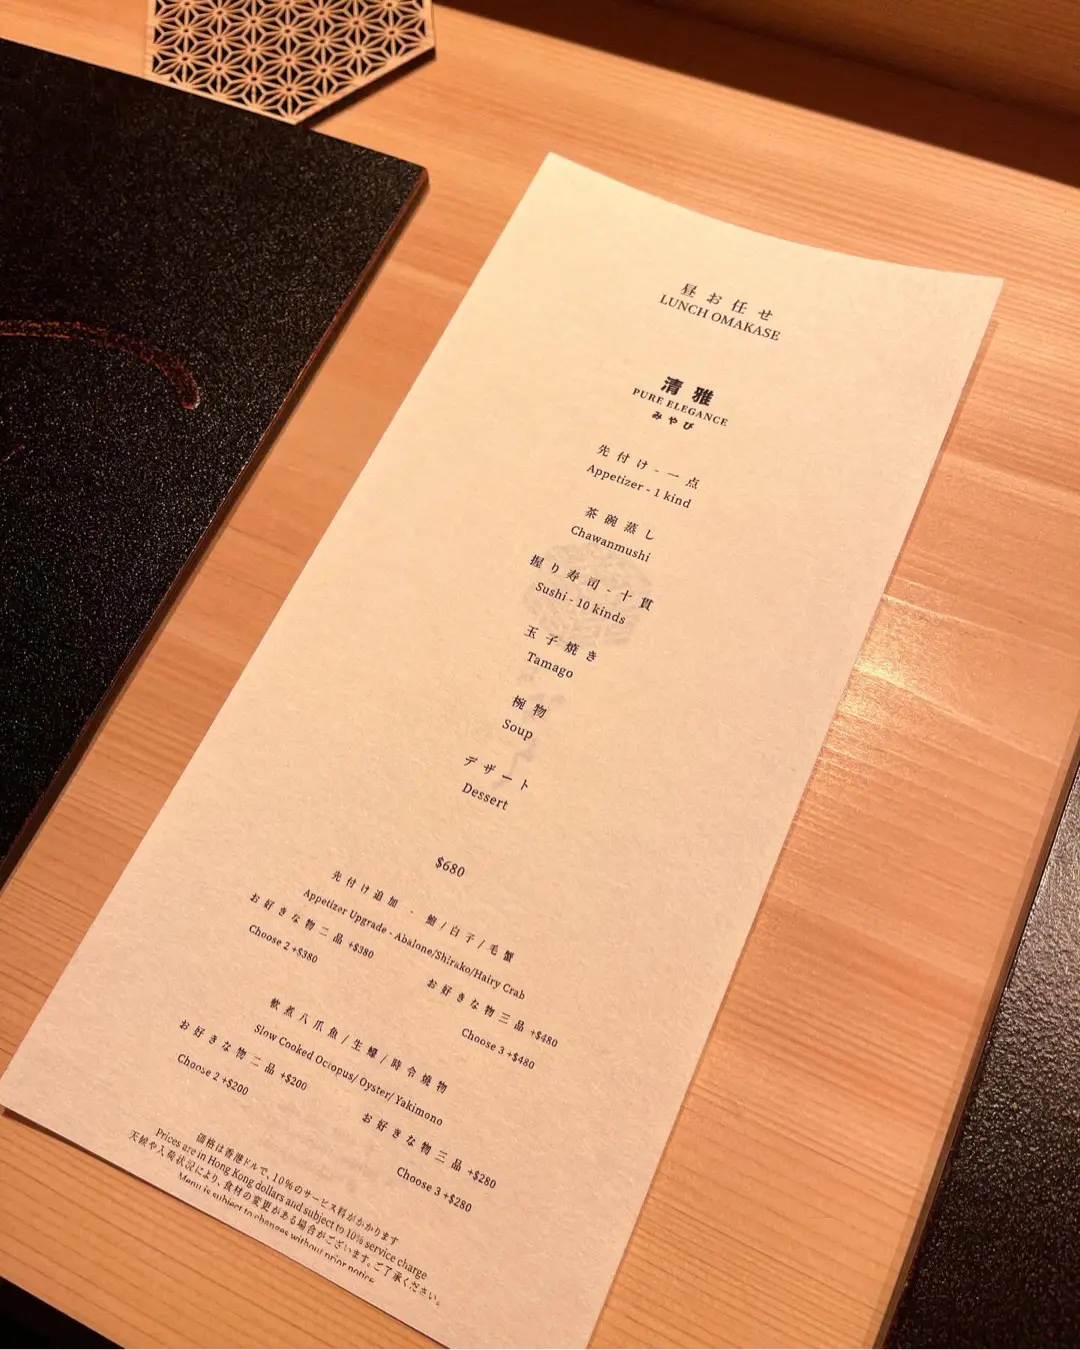 昼お任せ
LUNCH OMAKASE
清雅
PURE ELEGANCE
みやび
先付け - 一点
Appetizer - 1 kind
茶碗蒸し
Chawanmushi
握り寿司 - 十貫
Sushi - 10 kinds
玉子焼き
Tamago
椀物
Soup
デザート
Dessert
$680
先付け追加 - 鮑/白子/毛蟹
Appetizer Upgrade - Abalone/Shirako/Hairy Crab
お好きな物二品 +$380
Choose 2 +$380
お好きな物三品 +$480
Choose 3 +$480
軟煮八爪魚/生蠔/時令燒物
Slow Cooked Octopus/ Oyster/ Yakimono
お好きな物二品 +$200
Choose 2 +$200
お好きな物三品 +$280
Choose 3 +$280
価格は香港ドルで、10%のサービス料がかかります
Prices are in Hong Kong dollars and subject to 10% service charge
天候や入荷状況により、食材の変更がある場合がございます。ご了承ください。
Menu is subject to changes without prior notice